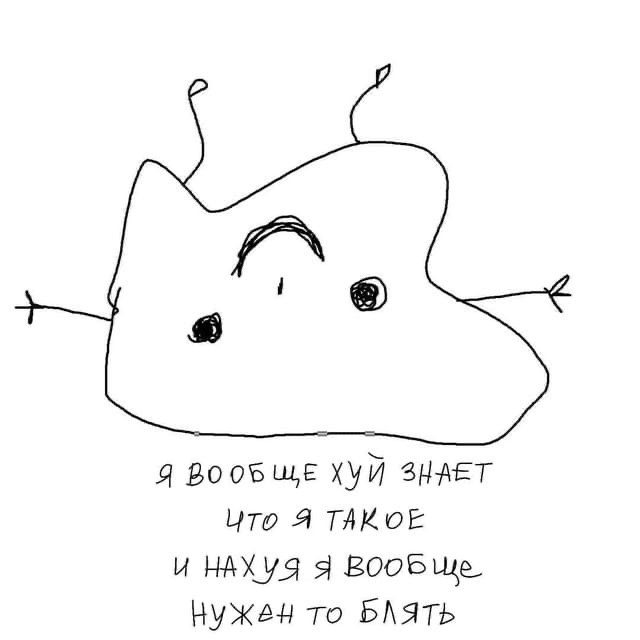 Я ВООБЩЕ ХУЙ ЗНАЕТ
ЧТО Я ТАКОЕ
И НАХУЯ Я ВООБЩЕ
НУЖЕН ТО БЛЯТЬ